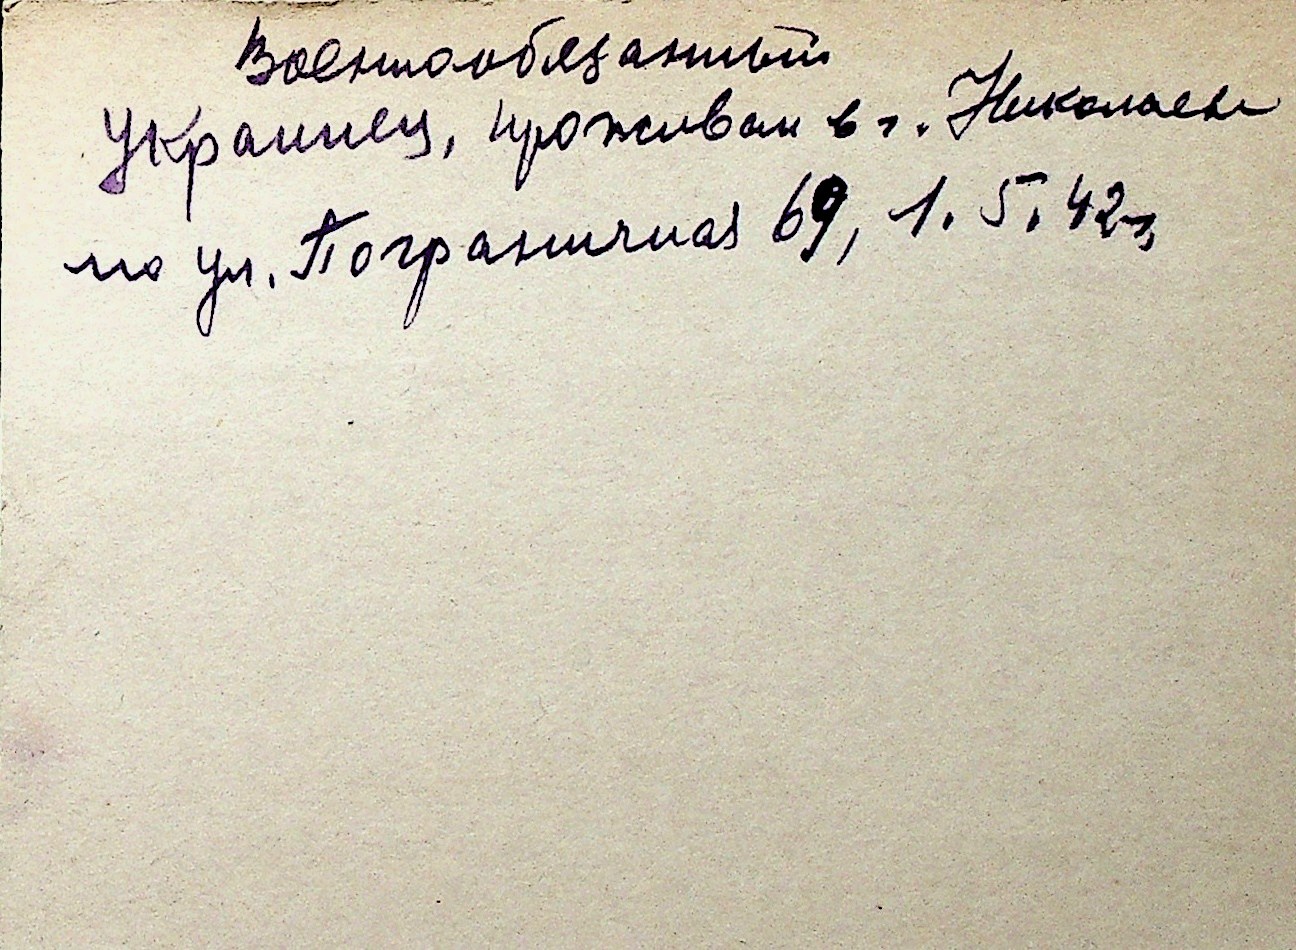 Военнообязанный
Украинец, проживал в г. Николаеве
по ул. Пограничная 69, 1.5.42г.